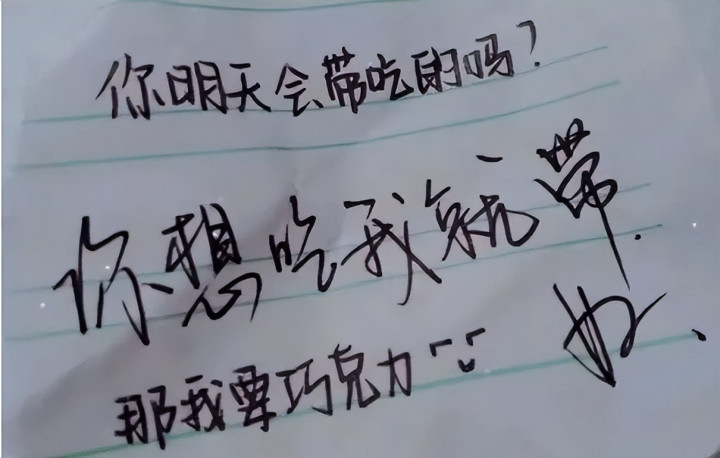 你明天会带吃的吗？
你想吃我就带.
好、
那我要巧克力